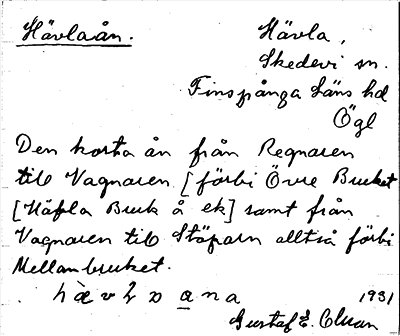 Hävlaån.
Hävla,
Skedevi sn.
Finspånga läns hd
Ögl
Den korta ån från Regnaren
till Vagnaren [förbi Övre Bruket
[Häfla Bruk å ek] samt från
Vagnaren till Stöparn alltså förbi
Mellanbruket.
1931
Gustaf E.